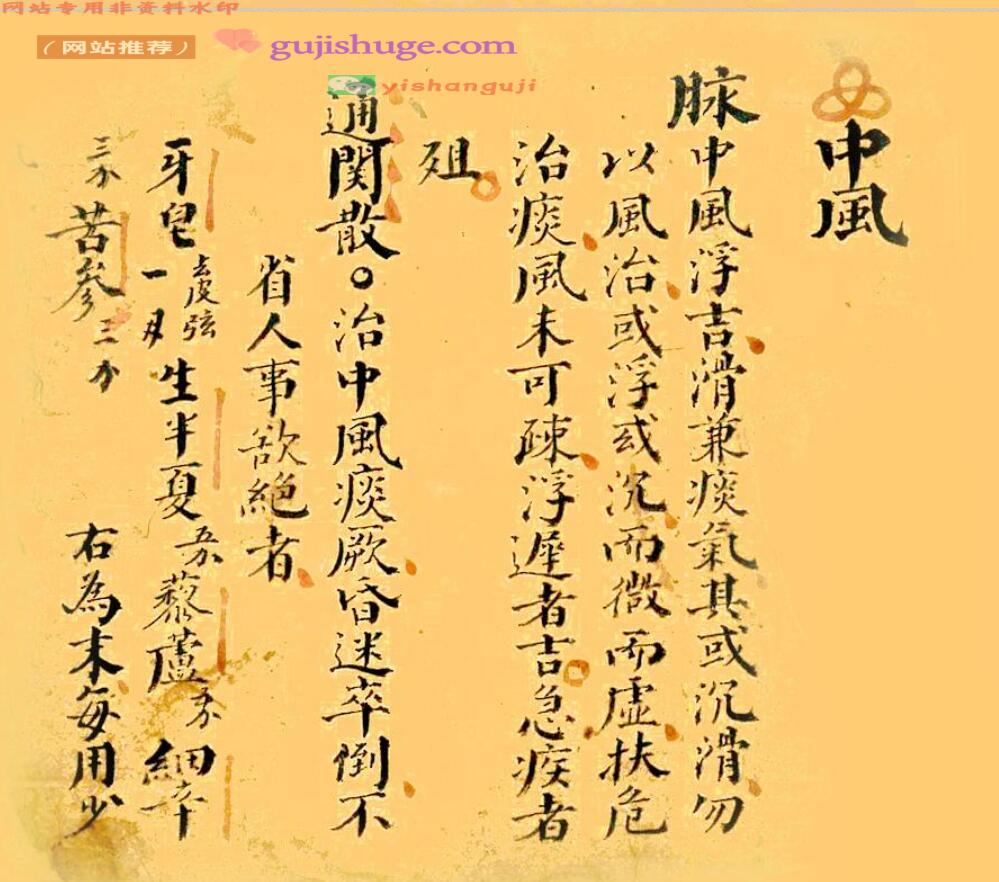 网站专用非资料水印
（网站推荐）
gujishuge.com
yishanguji
中風
脉中風浮吉滑兼痰氣其或沉滑勿
以風治或浮或沉而微而虚扶危
治痰風未可疎浮遲者吉急疾者
殂
通関散。治中風痰厥昏迷卒倒不
省人事欲絕者
牙皂去皮弦一刄生半夏五分藜蘆五分細辛
三分苦參三分 右為末每用少